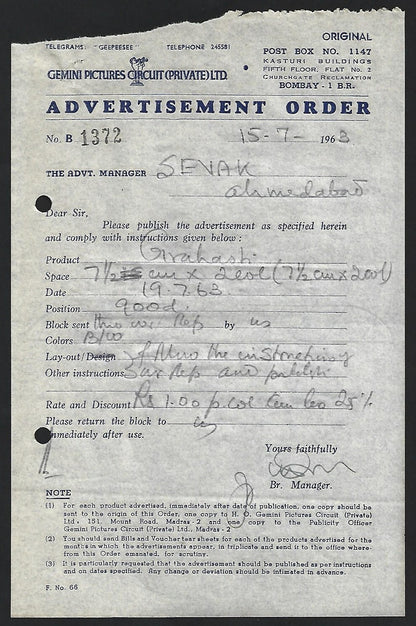 ORIGINAL
TELEGRAMS: "GEEPEESEE" TELEPHONE 245581
POST BOX NO. 1147
KASTURI BUILDINGS
FIFTH FLOOR, FLAT No. 2
CHURCHGATE RECLAMATION
BOMBAY - 1 B.R.
GEMINI PICTURES CIRCUIT (PRIVATE) LTD.
ADVERTISEMENT ORDER
No. B 1372 15-7-1963
THE ADVT. MANAGER SEVAK
Ahmedabad
Dear Sir,
Please publish the advertisement as specified herein
and comply with instructions given below :
Product Grahasti
Space 7½ cm x 2 col (7½ cm x 2 col)
Date 19.7.63
Position good.
Block sent thro our Rep by us
Colors B/W
Lay-out/Design thro the
Other instructions Rep and publish
Rate and Discount Rs 1.00 p. col cm less 25%
Please return the block to us
immediately after use.
Yours faithfully
Br. Manager.
NOTE
(1) For each product advertised, immediately after date of publication, one copy should be
sent to the origin of this Order, one copy to H. O. Gemini Pictures Circuit (Private)
Ltd., 151, Mount Road, Madras-2 and one copy to the Publicity Officer
Gemini Pictures Circuit (Private) Ltd., Madras-2
(2) You should send Bills and Voucher tear sheets for each of the products advertised for the
months in which the advertisements appear, in triplicate and send it to the office where-
from this Order emanated, for scrutiny.
(3) It is particularly requested that the advertisement should be published as per instructions
and on dates specified. Any change or deviation should be intimated in advance.
F. No. 66